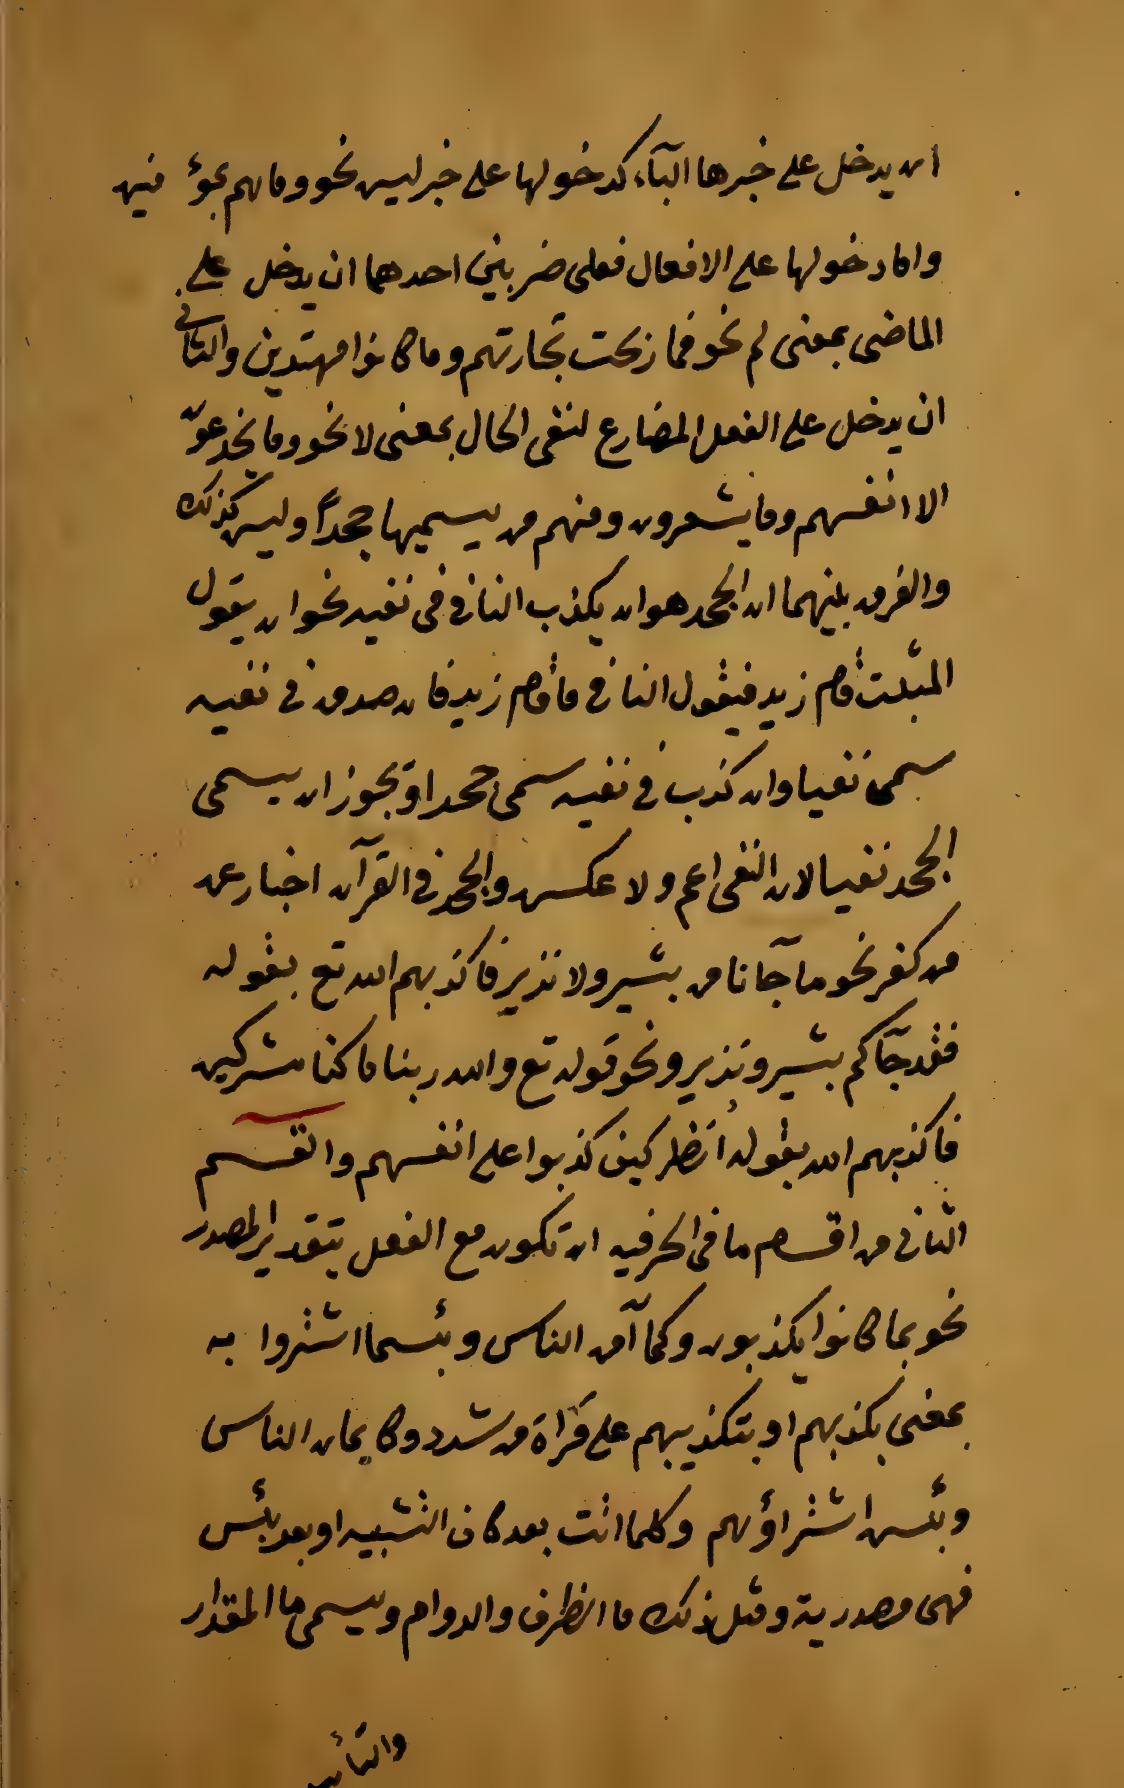 ان يدخل على خبرها البآء كدخولها على خبر ليس نحو وما هم بمؤمنين
واما دخولها على الافعال فعلى ضربين احدهما ان يدخل على
الماضى بمعنى لم نحو فما ربحت تجارتهم وما كانوا مهتدين والثانى
ان يدخل على الفعل المضارع لنفى الحال بمعنى لا نحو وما يخدعون
الا انفسهم وما يشعرون ومنهم من يسميها جحدًا وليس كذلك
والفرق بينهما ان الجحد هو ان يكذب النافى فى نفيه نحو ان يقول
المثبت قام زيد فيقول النافى ما قام زيد فان صدق فى نفيه
سمى نفيا وان كذب فى نفيه سمى جحدا ويجوز ان يسمى
الجحد نفيا لان النفى اعم ولا عكس والجحد فى القرآن اخبار عن
من كفر نحو ما جآنا من بشير ولا نذير فاكذبهم الله تع بقوله
فقد جآكم بشير ونذير ونحو قوله تع والله ربنا ما كنا مشركين
فاكذبهم الله بقوله انظر كيف كذبوا على انفسهم والقسم
الثانى من اقسام ما فى الحرفيه ان تكون مع الفعل بتقدير المصدر
نحو بما كانوا يكذبون وكمآ آمن الناس وبئسما اشتروا به
بمعنى بكذبهم او بتكذيبهم على قراة من شدد وكايمان الناس
وبئس اشتراؤهم وكلما اتت بعد كاف التشبيه او بعد بئس
فهى مصدرية ومثل ذلك ما الظرف والدوام ويسمى ما المقدار